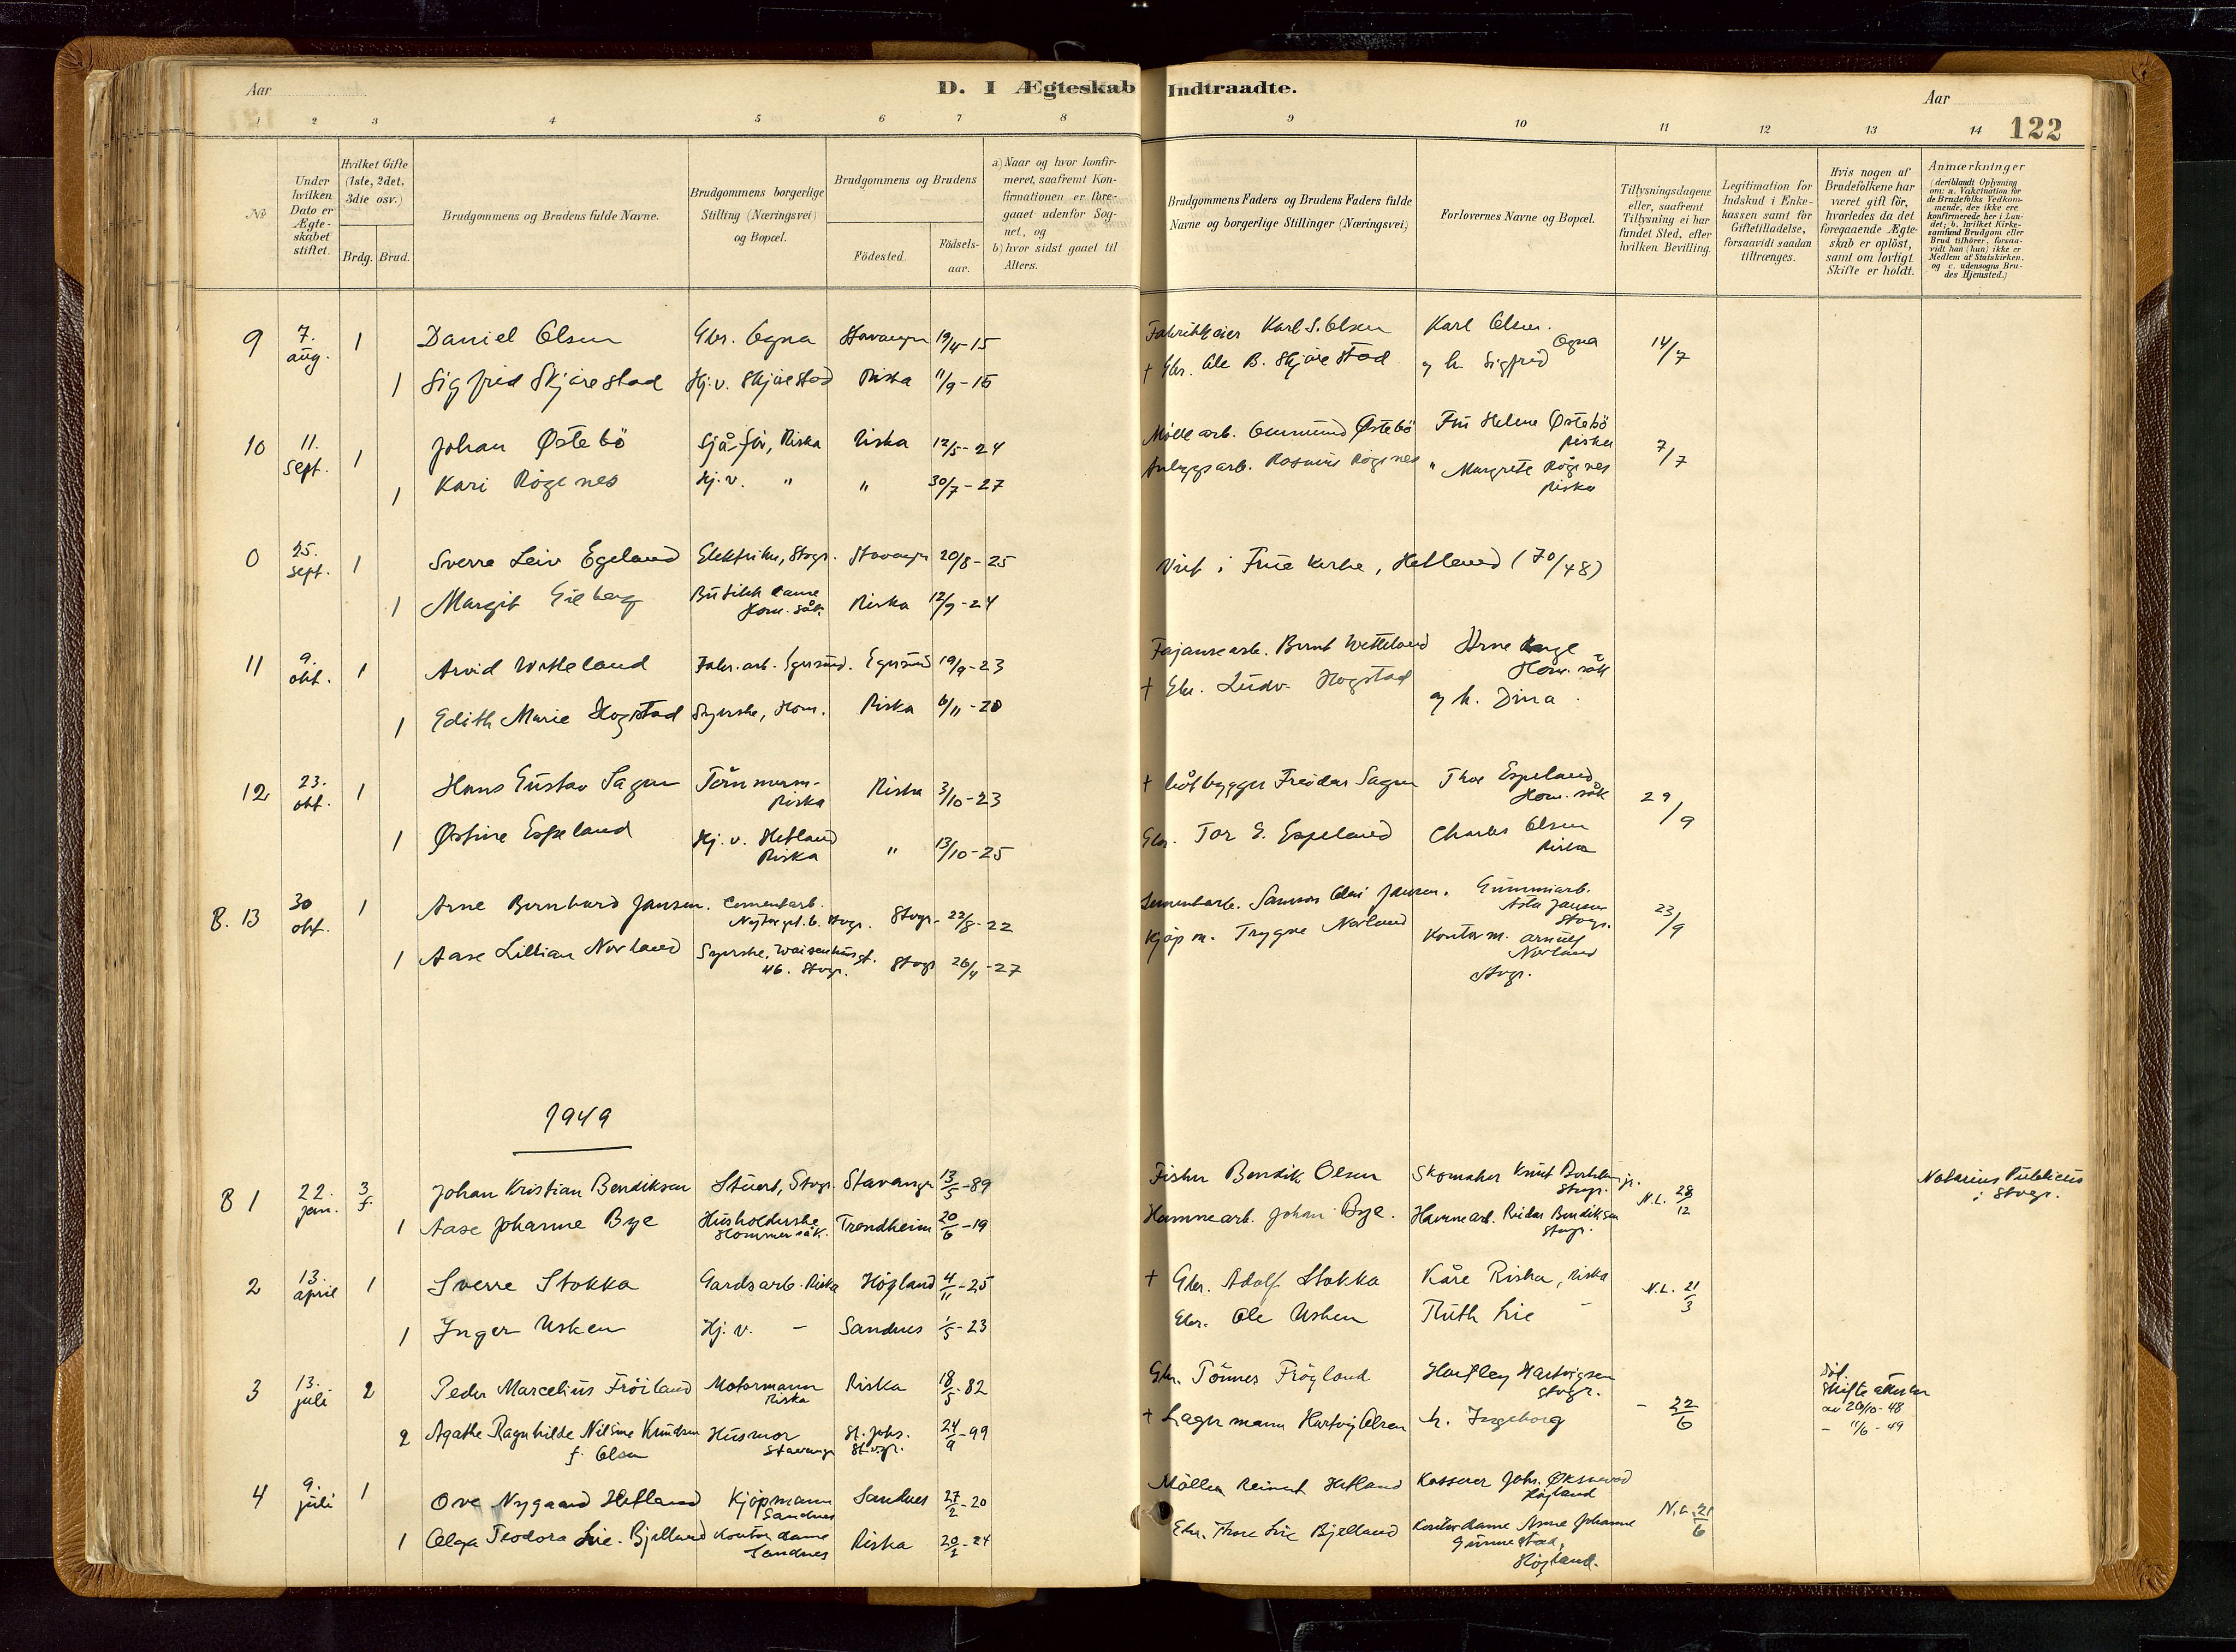 Aar
D. I Ægteskab Indtraadte.
Aar
122
1 2 3 4 5 6 7 8 9 10 11 12 13 14
No
Under hvilken Dato er Ægteskabet stiftet.
Hvilket Gifte (1ste, 2det, 3die osv.)
Brdg. Brud.
Brudgommens og Brudens fulde Navne.
Brudgommens borgerlige Stilling (Næringsvei) og Bopæl.
Brudgommens og Brudens
Födested.
Födsels-aar.
a) Naar og hvor konfirmeret, saafremt Konfirmationen er foregaaet udenfor Sognet, og
b) hvor sidst gaaet til Alters.
Brudgommens Faders og Brudens Faders fulde Navne og borgerlige Stillinger (Næringsvei)
Forlovernes Navne og Bopæl.
Tillysningsdagene eller, saafremt Tillysning ei har fundet Sted, efter hvilken Bevilling.
Legitimation for Indskud i Enkekassen samt for Giftetilladelse, forsaavidt saadan tiltrænges.
Hvis nogen af Brudefolkene har været gift för, hvorledes da det foregaaende Ægteskab er oplöst, samt om lovligt Skifte er holdt.
Anmærkninger
(deriblandt Oplysning om: a. Vakcination for de Brudefolks Vedkommende, der ikke ere konfirmerede her i Landet; b. hvilket Kirkesamfund Brudgom eller Brud tilhörer, forsaavidt han (hun) ikke er Medlem af Statskirken, og c. udensogns Brudes Hjemsted.)
9 7. aug. 1 Daniel Olsen Gbr. Ogna Stavanger 19/4-15 Karl S. Olsen Karl Olsen. Ogna 14/7
1 Sigfred Skjørestad Hj.v. Skjørestad Riska 11/9-16 † Gbr. Ole B. Skjørestad og h. Sigfrid
10 11. sept. 1 Johan Østebö Riska Riska 12/5-24 Mölle arb. Østebö Fru Helene Østebö Riska 7/7
1 Kari Rögenes Hj.v. " " 30/7-27 Anleggsarb. Rasmus Rögenes " Margrete Rögenes Riska
0 25. sept. 1 Sverre Leiv Egeland Stvgr. Stavanger 20/8-25 i Frue kirke, Hetland (70/48)
1 Margit Butikk dame Hom.såk Riska 12/9-24
11 9. okt. 1 Arvid Wetteland Fabr.arb. Egersund. Egersund 19/9-23 Fajansearb. Bernt Wetteland Arne Hom.såk
1 Edith Marie Hogstad Syerske, Hom. Riska 6/11-20 † Gbr. Ludv. Hogstad og h. Dina.
12 23. okt. 1 Hans Gustav Sagen Riska Riska 3/10-23 † båtbygger Sagen Thor Espeland Hom.såk 29/9
1 Østine Espeland Hj.v. Hetland Riska " 13/10-25 Gbr. Tor E. Espeland Charles Olsen Riska
B. 13 30 okt. 1 Arne Bernhard Jansen. Cementarb. Stvgr. Stvgr. 22/8-22 Sementarb. Jansen. Gummiarb. Asta Jansen Stvgr. 23/9
1 Aase Lillian Norland Syerske, Waisenhusst. 46. Stvgr. Stvgr 26/4-27 Kjöpm. Trygve Norland Kontorm. Arnulf Norland Stvgr.
1949
B 1 22. jan. 3 f. Johan Kristian Bendiksen Stuert, Stvgr. Stavanger 13/5-89 Fisker Bendik Olsen Skomaker Knut jr. Stvgr. N.L. 28/12 Notarius Publicus i Stvgr.
1 Aase Johanne Bye Husholderske Hommersåk. Trondheim 20/6-19 Havnearb. Johan Bye. Havnearb. Reidar Bendiksen Stvgr.
2 13. april 1 Sverre Stokka Gardsarb. Riska Högland 4/11-25 † Gbr. Adolf Stokka Kåre Riska, Riska N.L. 21/3
1 Inger Usken Hj.v. - Sandnes 1/5-23 Gbr. Ole Usken Ruth Lie -
3 13. juli 2 Peder Marcelius Fröiland Motormann Riska Riska 18/5-82 Gbr. Tönnes Fröyland Hartley Hartvigsen Stvgr. - 22/6 Skifteattester av 20/10-48 - 11/6-49
2 Agathe Ragnhilde Nilsine Knudsen f. Olsen Husmor Stavanger St. Johs. Stvgr. 24/9-99 † Lagermann Hartvig Olsen h. Ingeborg
4 9. juli 1 Ove Nygaard Hetland Kjöpmann Sandnes Sandnes 27/2-20 Möller Reinert Hetland Kasserer Johs. Øksnevad Högland N.L. 21/6
1 Olga Teodora Lie-Bjelland Kontordame Sandnes Riska 20/1-24 Gbr. Thore Lie Bjelland Kontordame Anne Johanne Gunnestad, Högland.